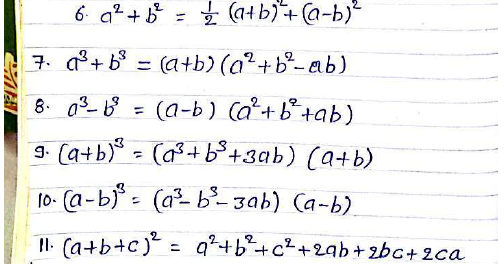 6. a² + b² = 1/2 (a+b)² + (a-b)²
7. a³ + b³ = (a+b) (a² + b² - ab)
8. a³ - b³ = (a-b) (a² + b² + ab)
9. (a+b)³ = (a³ + b³ + 3ab) (a+b)
10. (a-b)³ = (a³ - b³ - 3ab) (a-b)
11. (a+b+c)² = a² + b² + c² + 2ab + 2bc + 2ca